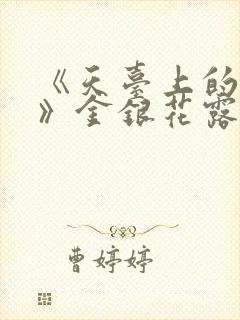 《天臺上的
》金銀花露
曹婷婷